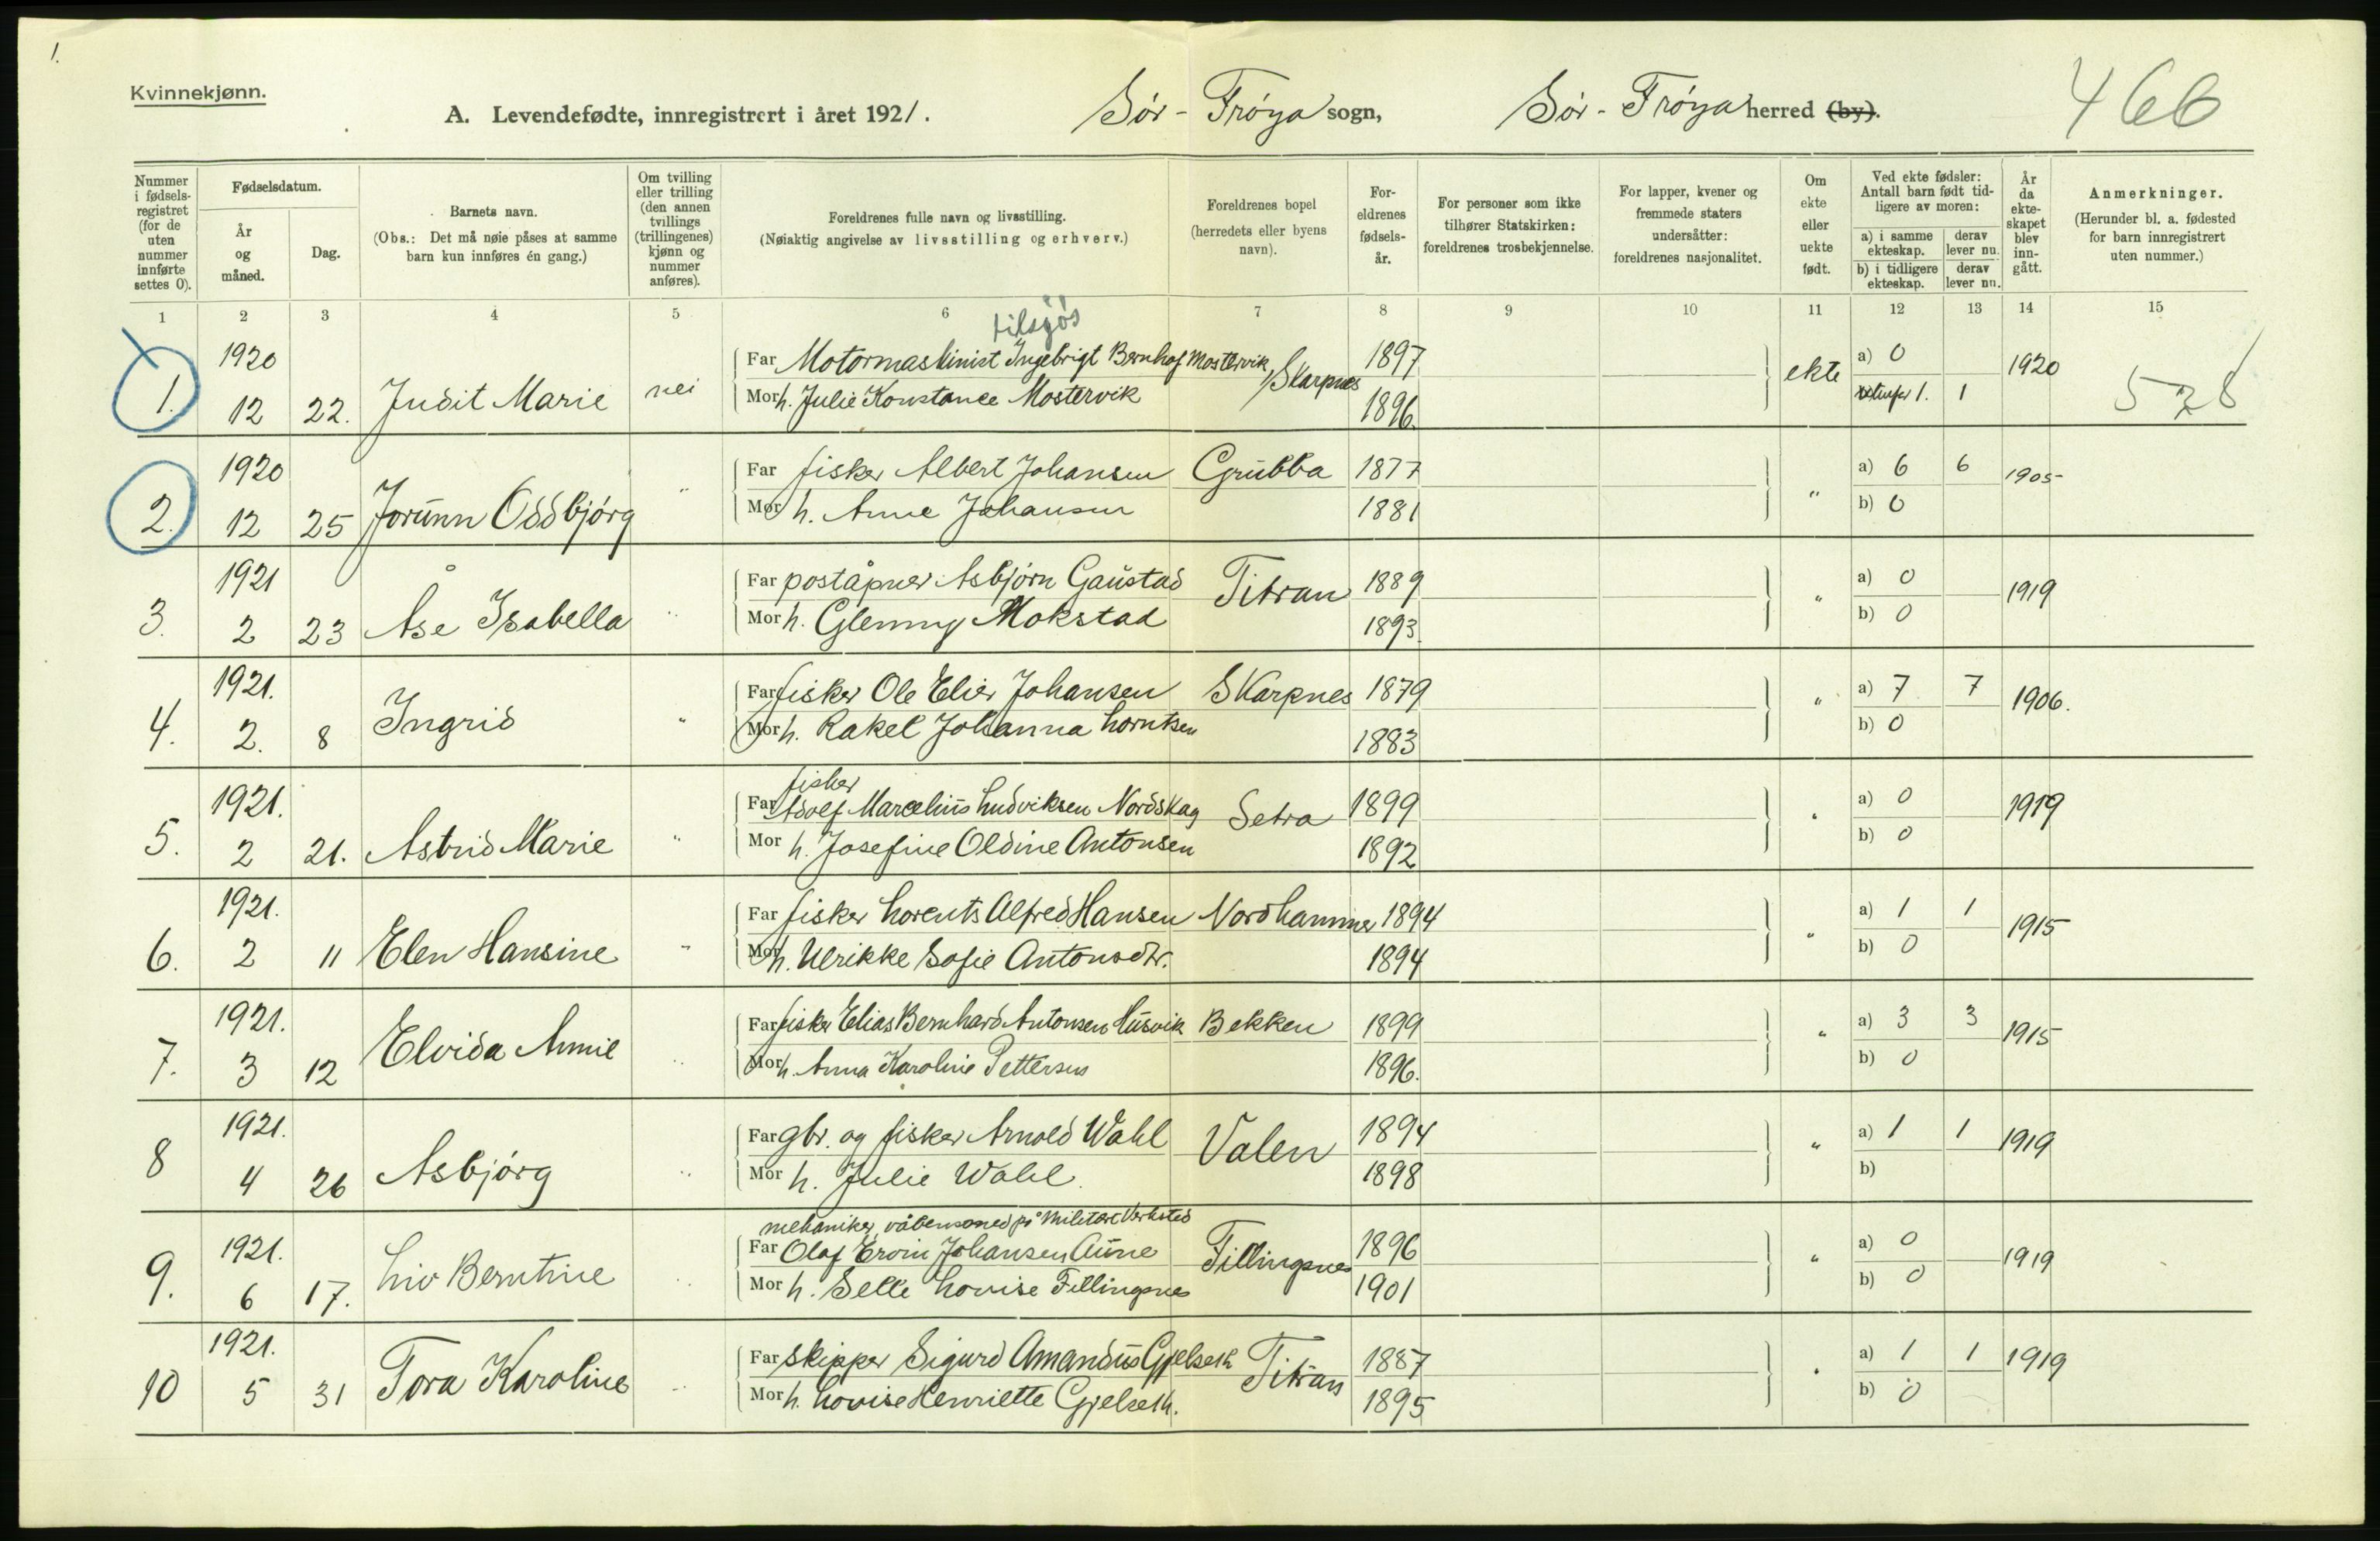 1.
Kvinnekjønn.
A. Levendefødte, innregistrert i året 1921. Sör-Fröya sogn, Sör-Fröya herred (by). 466
Nummer i fødselsregistret (for de uten nummer innførte settes 0).
Fødselsdatum.
År og måned.
Dag.
Barnets navn.
(Obs.: Det må nøie påses at samme barn kun innføres én gang.)
Om tvilling eller trilling (den annen tvillings (trillingenes) kjønn og nummer anføres).
Foreldrenes fulle navn og livsstilling.
(Nøiaktig angivelse av livsstilling og erhverv.)
Foreldrenes bopel (herredets eller byens navn).
Foreldrenes fødselsår.
For personer som ikke tilhører Statskirken: foreldrenes trosbekjennelse.
For lapper, kvener og fremmede staters undersåtter: foreldrenes nasjonalitet.
Om ekte eller uekte født.
Ved ekte fødsler: Antall barn født tidligere av moren:
a) i samme ekteskap. derav lever nu.
b) i tidligere ekteskap. derav lever nu.
År da ekteskapet blev inngått.
Anmerkninger.
(Herunder bl. a. fødested for barn innregistrert uten nummer.)
1 2 3 4 5 6 7 8 9 10 11 12 13 14 15
tilsjös
1920 Far Motormaskinist Ingebrigt Bernhof Mostervik, Skarpnes 1897 ekte a) 0 1920
1. 12 22. Judit Marie nei Mor h. Julie Konstance Mostervik 1896. 1. 1 528
1920 Far fisker Albert Johansen Grubba 1877 " a) 6 6 1905
2. 12 25 Jorunn Oddbjörg " Mor h. Anne Johansen 1881 b) 0
1921 Far poståpner Asbjörn Gaustad Titran 1889 " a) 0 1919
3. 2 23 Åse Isabella " Mor h. Glenny Mokstad 1893. b) 0
1921. Far fisker Ole Elier Johansen Skarpnes 1879 " a) 7 7 1906.
4. 2. 8 Ingrid " Mor h. Rakel Johanna Lorntsen 1883 b) 0
fisker
1921. Far Adolf Marcelius Ludviksen Nordskag Setra 1899 " a) 0 1919
5. 2 21. Astrid Marie " Mor h. Josefine Oldine Antonsen 1892 b) 0
1921. Far fisker Lorents Alfred Hansen Nordhammer 1894 " a) 1 1 1915
6. 2 11 Elen Hansine " Mor h. Ulrikke Sofie Antonsdtr. 1894 b) 0
1921. Far fisker Elias Bernhard Antonsen Husvik Bekken 1899 " a) 3 3 1915
7. 3 12 Elvida Annie " Mor h. Anna Karoline Pettersen 1896. b) 0
1921. Far gbr. og fisker Arnold Wahl Valen 1894 " a) 1 1 1919
8 4 26 Asbjörg " Mor h. Julie Wahl. 1898 b)
mekaniker, våbensmed på Militært Verksted
1921. Far Olaf Ervin Johansen Aune Fillingsnes 1896 " a) 0 1919
9. 6 17. Liv Berntine " Mor h. Selle Lovise Fillingsnes 1901 b) 0
1921. Far skipper Sigurd Amandus Gjelseth Titran 1887 " a) 1 1 1919
10 5 31 Tora Karoline " Mor h. Lovise Henriette Gjelseth. 1895 b) 0